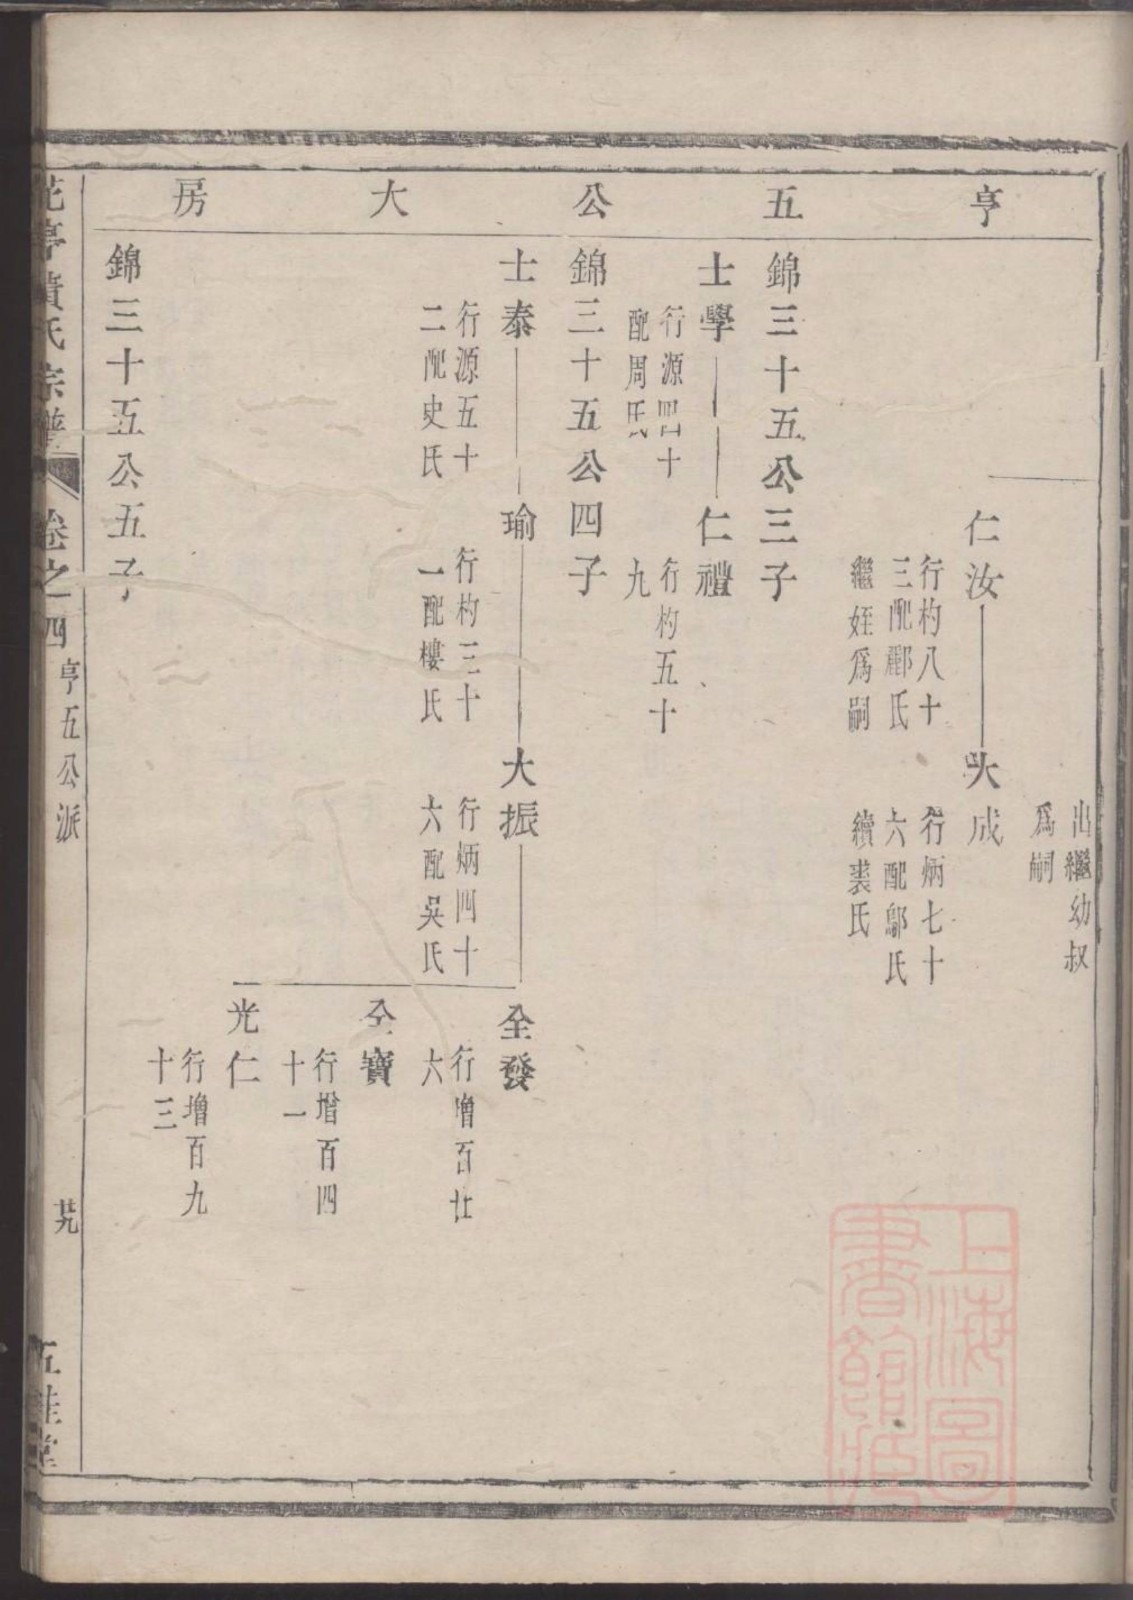 亨五公大房
出繼幼叔
爲嗣
仁汝
行杓八十
三配酈氏
繼姪爲嗣
大成
行炳七十
六配鄔氏
續裘氏
錦三十五公三子
士學
行源四十
配周氏
仁禮
行杓五十
九
錦三十五公四子
士泰
行源五十
二配史氏
瑜
行杓三十
一配樓氏
大振
行炳四十
六配吳氏
全發
行增百廿
六
全寶
行增百四
十一
光仁
行增百九
十三
錦三十五公五子
花亭黃氏宗譜
卷之四
亨五公派
廿九
五桂堂
上海圖書館藏